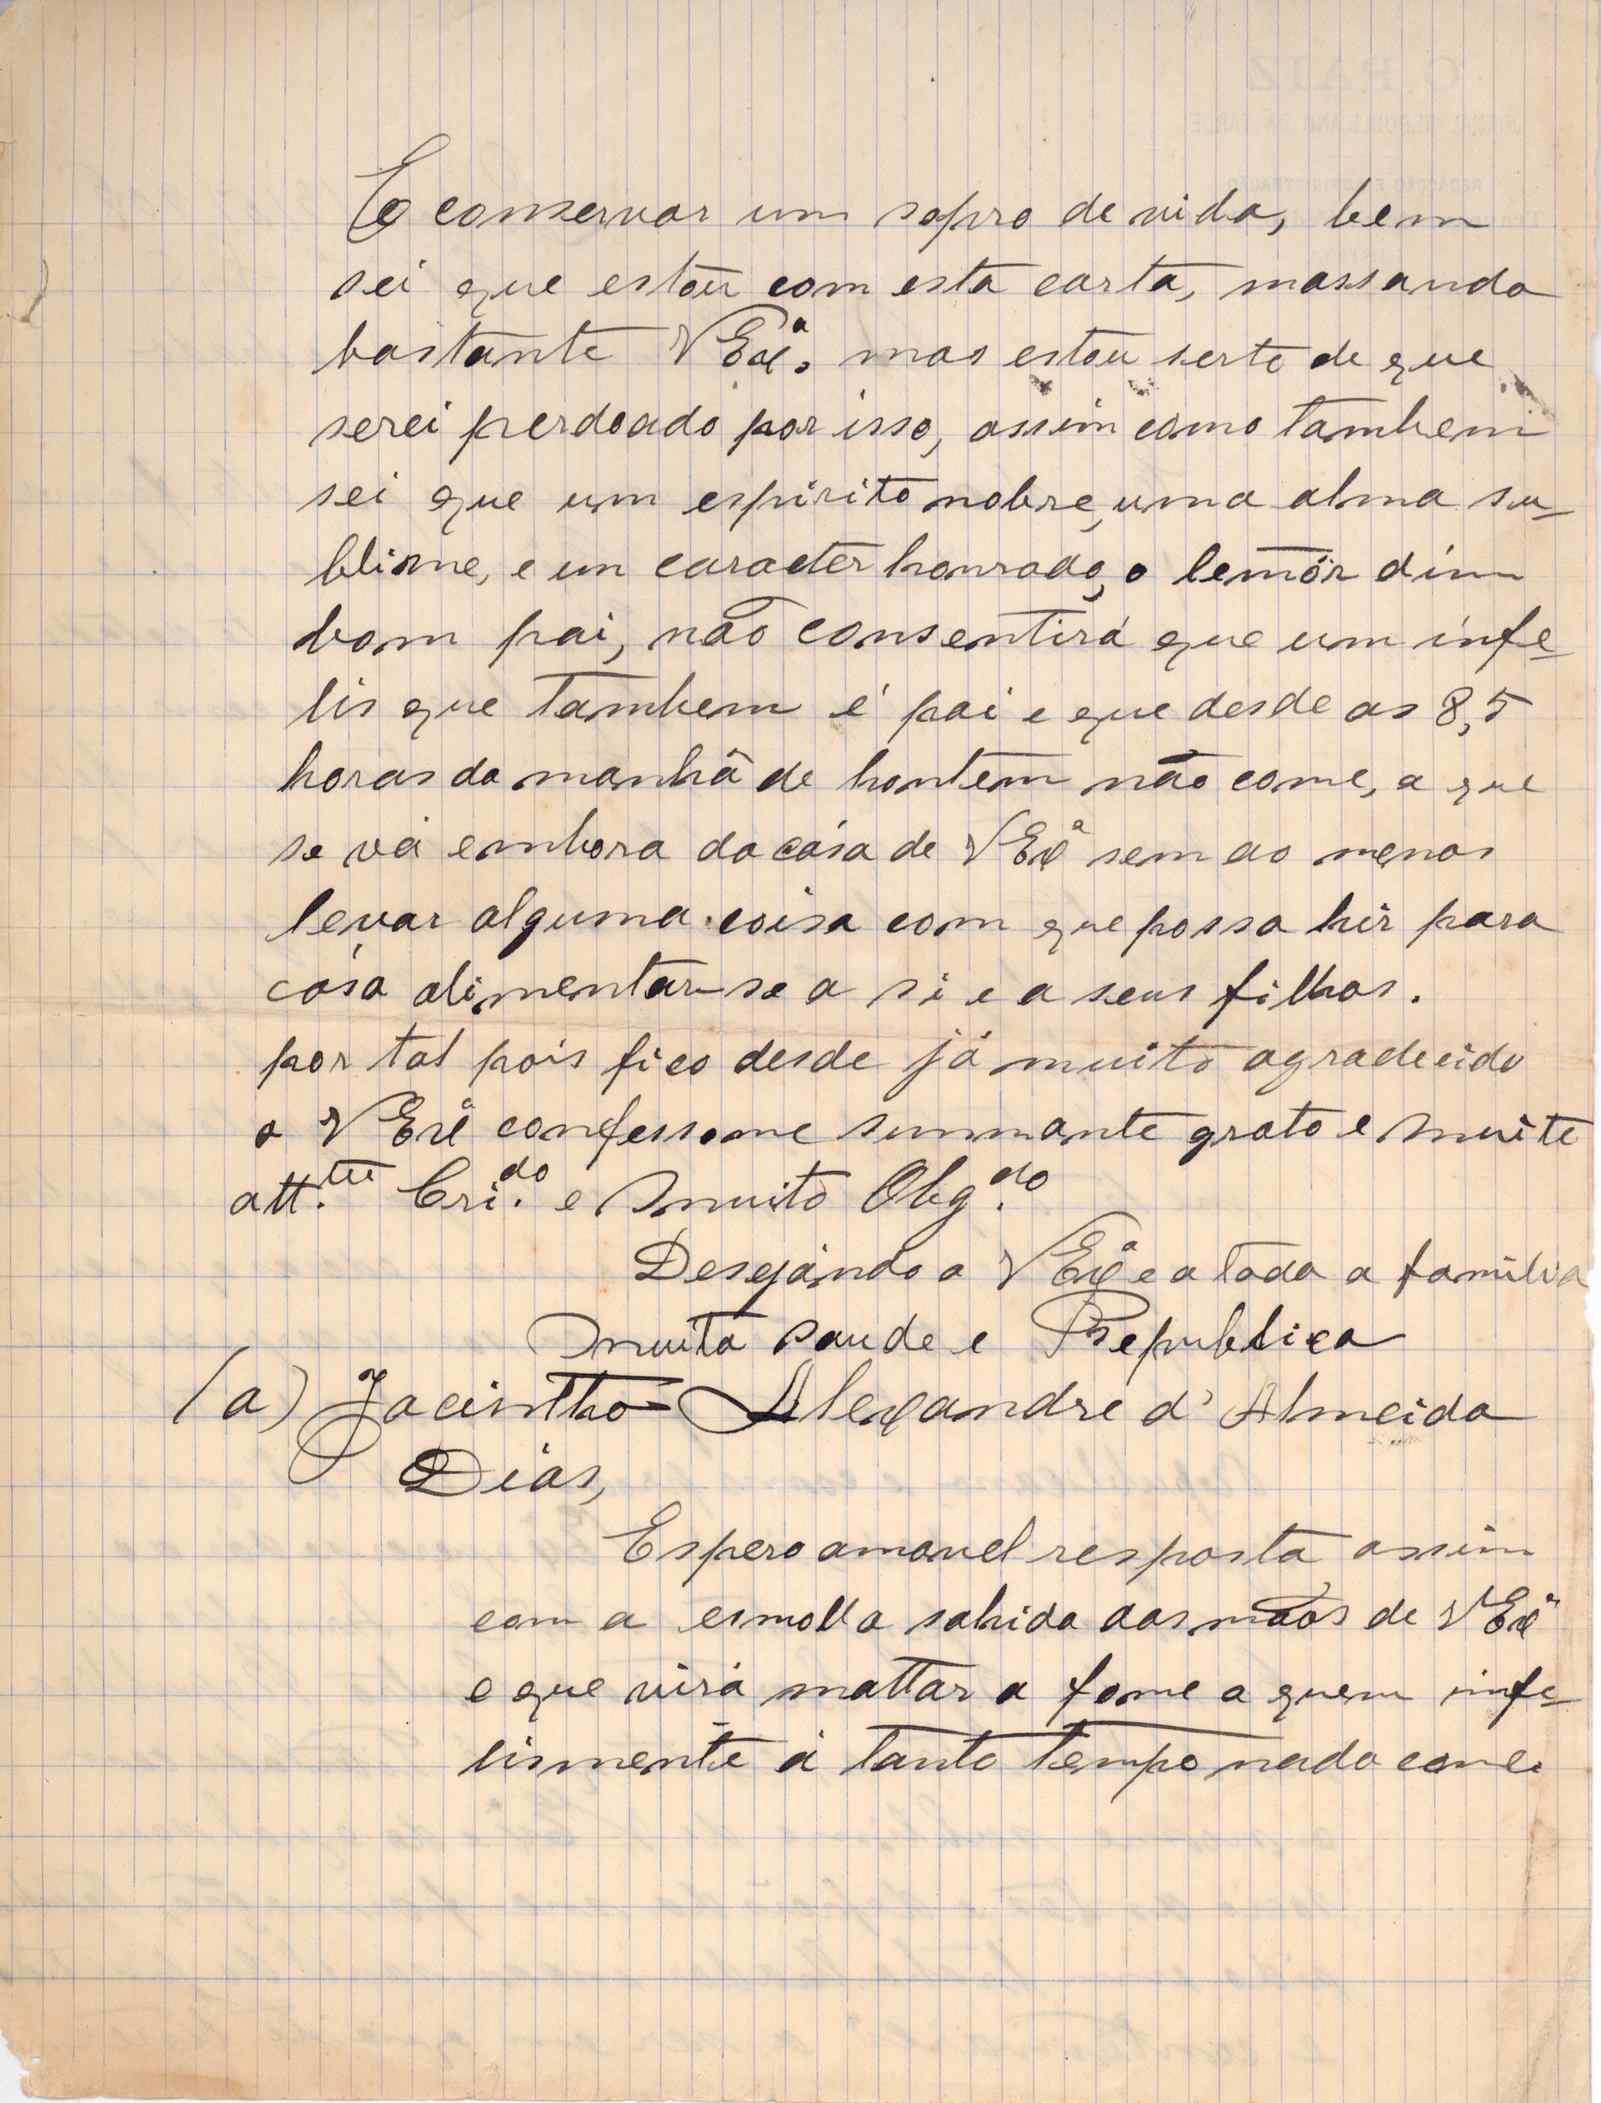 E conservar um sopro de vida, bem
sei que estou com esta carta, massando
bastante VExª. mas estou serto de que
serei perdoado por isso, assim como tambem
sei que um espirito nobre, uma alma su-
blime, e um caracter honrado, o d'um
bom pai, não consentirá que um infe-
lis que tambem é pai e que desde as 8,5
horas da manhã de hontem não come, a que
se vá embora da cása de VExª sem ao menos
levar alguma coisa com que possa hir para
cása alimentar-se a si e a seus filhos.
por tal pois fico desde já muito agradecido
a VExª confessome summante grato e muite
att.te Cri.do e Muito Obg.do
Desejándo a VExª e a toda a familia
Muita Saude e Republica
(a) Jacintho Alexandre d'Almeida
Diás,
Espero amavel resposta assim
com a esmolla sahida das mãos de VExª
e que virá mattar a fome a quem infe-
lismente á tanto tempo nada come.
O PAIZ